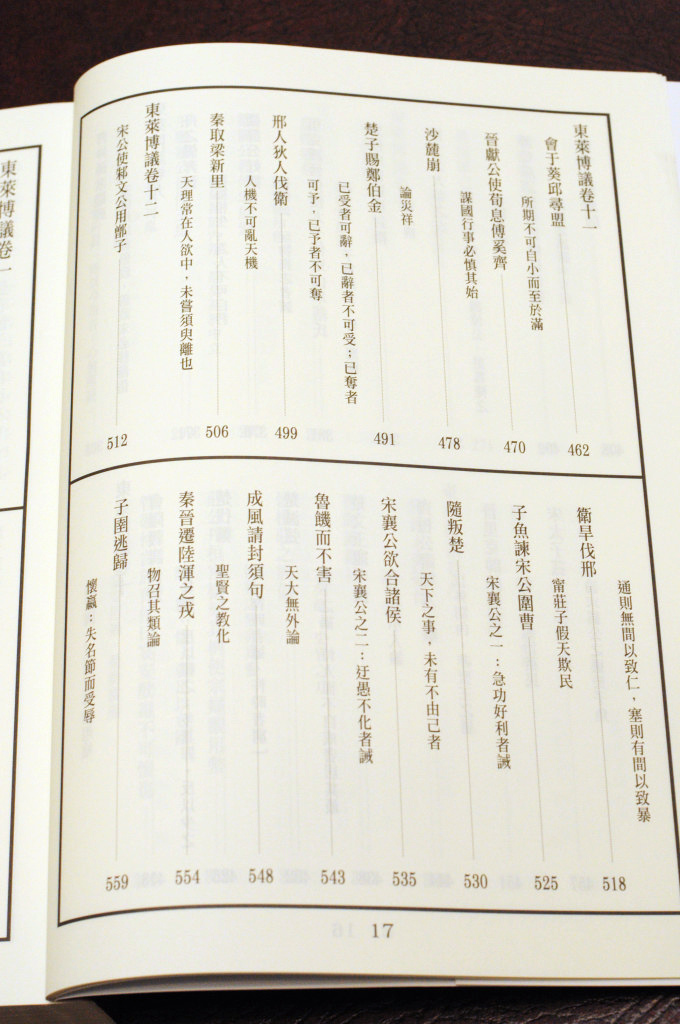 東萊博議卷十一
會于葵邱尋盟 462
所期不可自小而至於滿
晉獻公使荀息傅奚齊 470
謀國行事必慎其始
沙麓崩 478
論災祥
楚子賜鄭伯金 491
已受者可辭，已辭者不可受；已奪者
可予，已予者不可奪
邢人狄人伐衛 499
人機不可亂天機
秦取梁新里 506
天理常在人欲中，未嘗須臾離也
東萊博議卷十二
宋公使邾文公用鄫子 512
通則無間以致仁，塞則有間以致暴
衛旱伐邢 518
甯莊子假天欺民
子魚諫宋公圍曹 525
宋襄公之一：急功好利者誡
隨叛楚 530
天下之事，未有不由己者
宋襄公欲合諸侯 535
宋襄公之二：迂愚不化者誡
魯饑而不害 543
天大無外論
成風請封須句 548
聖賢之教化
秦晉遷陸渾之戎 554
物召其類論
子圉逃歸 559
懷嬴：失名節而受辱
17
東萊博議卷一